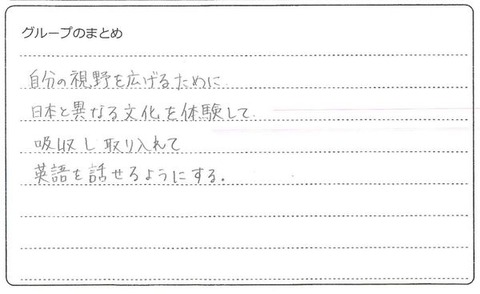 グループのまとめ
自分の視野を広げるために
日本と異なる文化を体験して
吸収し取り入れて
英語を話せるようにする.